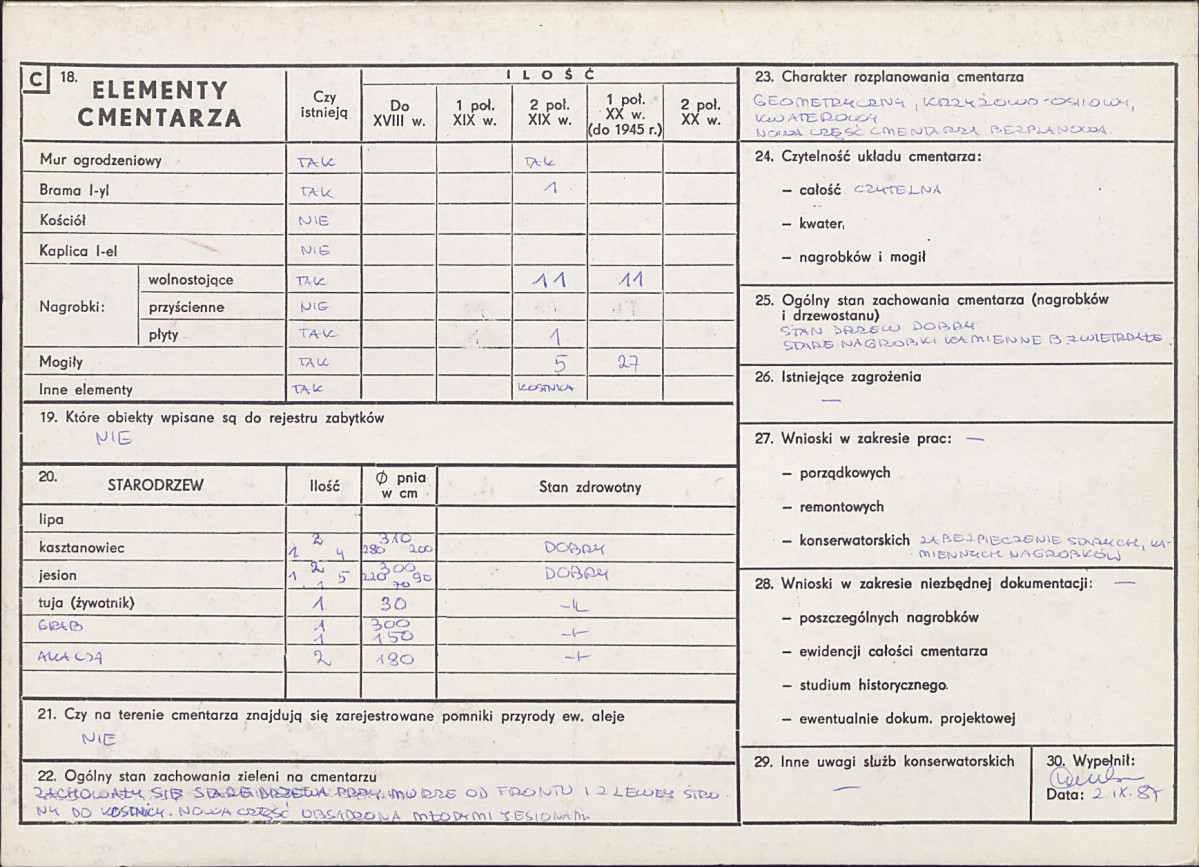 C 18. ELEMENTY CMENTARZA
Czy istnieją
ILOŚĆ
Do XVIII w.
1 poł. XIX w.
2 poł. XIX w.
1 poł. XX w. (do 1945 r.)
2 poł. XX w.
Mur ogrodzeniowy TAK TAK
Brama I-yl TAK 1
Kościół NIE
Kaplica I-el NIE
Nagrobki:
wolnostojące TAK 11 11
przyścienne NIE
płyty TAK 1 1
Mogiły TAK 5 27
Inne elementy TAK KOSTNICA
19. Które obiekty wpisane są do rejestru zabytków
NIE
20. STARODRZEW Ilość Ø pnia w cm Stan zdrowotny
lipa
kasztanowiec 2 310
1 4 280 200 DOBRY
jesion 2 300
1 5 220 90 DOBRY
1 70
tuja (żywotnik) 1 30 -||-
GRAB 1 300
1 150 -||-
AKACJA 2 180 -||-
21. Czy na terenie cmentarza znajdują się zarejestrowane pomniki przyrody ew. aleje
NIE
22. Ogólny stan zachowania zieleni na cmentarzu
ZACHOWAŁY SIĘ STARE DRZEWA PRZY MURZE OD FRONTU I Z LEWEJ STRO-
NY DO KOSTNICY. NOWA CZĘŚĆ OBSADZONA MŁODYMI JESIONAMI.
23. Charakter rozplanowania cmentarza
GEOMETRYCZNY, KRZYŻOWO-OSIOWY,
KWATEROWY
NOWA CZĘŚĆ CMENTARZA BEZPLANOWA.
24. Czytelność układu cmentarza:
– całość CZYTELNA
– kwater,
– nagrobków i mogił
25. Ogólny stan zachowania cmentarza (nagrobków
i drzewostanu)
STAN DRZEW DOBRY
STARE NAGROBKI KAMIENNE B. ZWIETRZAŁE.
26. Istniejące zagrożenia
—
27. Wnioski w zakresie prac: —
– porządkowych
– remontowych
– konserwatorskich ZABEZPIECZENIE STARYCH, KA-
MIENNYCH NAGROBKÓW
28. Wnioski w zakresie niezbędnej dokumentacji: —
– poszczególnych nagrobków
– ewidencji całości cmentarza
– studium historycznego.
– ewentualnie dokum. projektowej
29. Inne uwagi służb konserwatorskich
—
30. Wypełnił:
Data: 2.IX.87